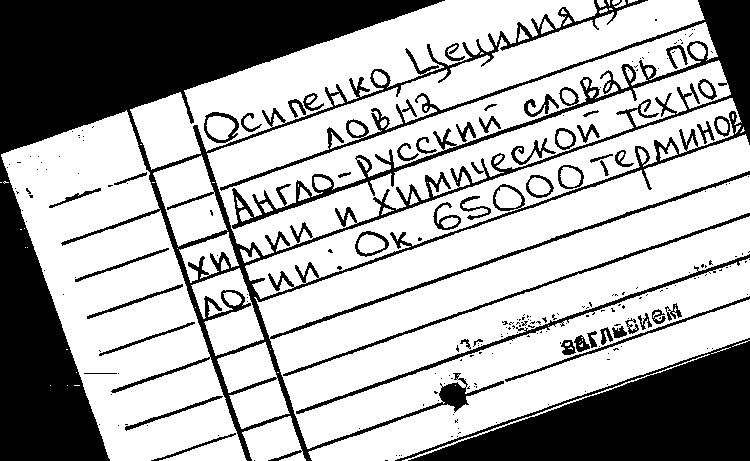 Осипенко, Цецилия
ловна
Англо-русский словарь по
химии и химической техно-
логии : Ок. 65000 терминов
заглавием